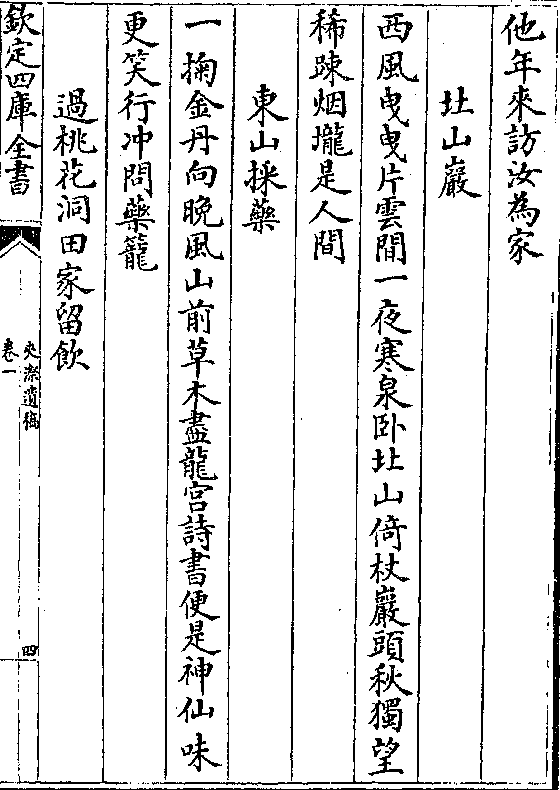 他年來訪汝為家
北山巖
西風曳曳片雲間一夜寒泉卧北山倚杖巖頭秋獨望
稀踈烟壠是人間
東山採藥
一掬金丹向晚風山前草木盡龍宫詩書便是神仙味
更笑行冲問藥籠
過桃花洞田家留飲
欽定四庫全書
夾漈遺稿
卷一
四